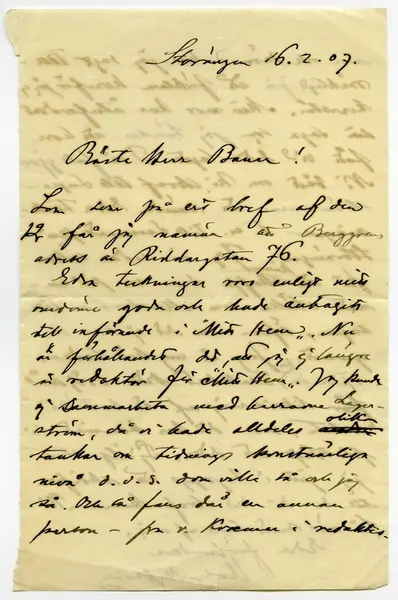 Storängen 16.2.07.
Bäste Herr Bauer!
Som svar på ert bref af den
12 får jag nämna att Berggrens
adress är Riddargatan 76.
Edra teckningar voro enligt mitt
omdöme goda och hade antagits
till införande i "Mitt Hem". Nu
är förhållandet det att jag ej längre
är redaktör för "Mitt Hem". Jag kunde
ej samarbeta med herrarne Lager-
ström, då vi hade alldeles olika
tankar om tidnings konstnärliga
nivå d.v.s. dom ville så och jag
så. Och så fans där en annan
person – fru v. Kræmer i redaktio-